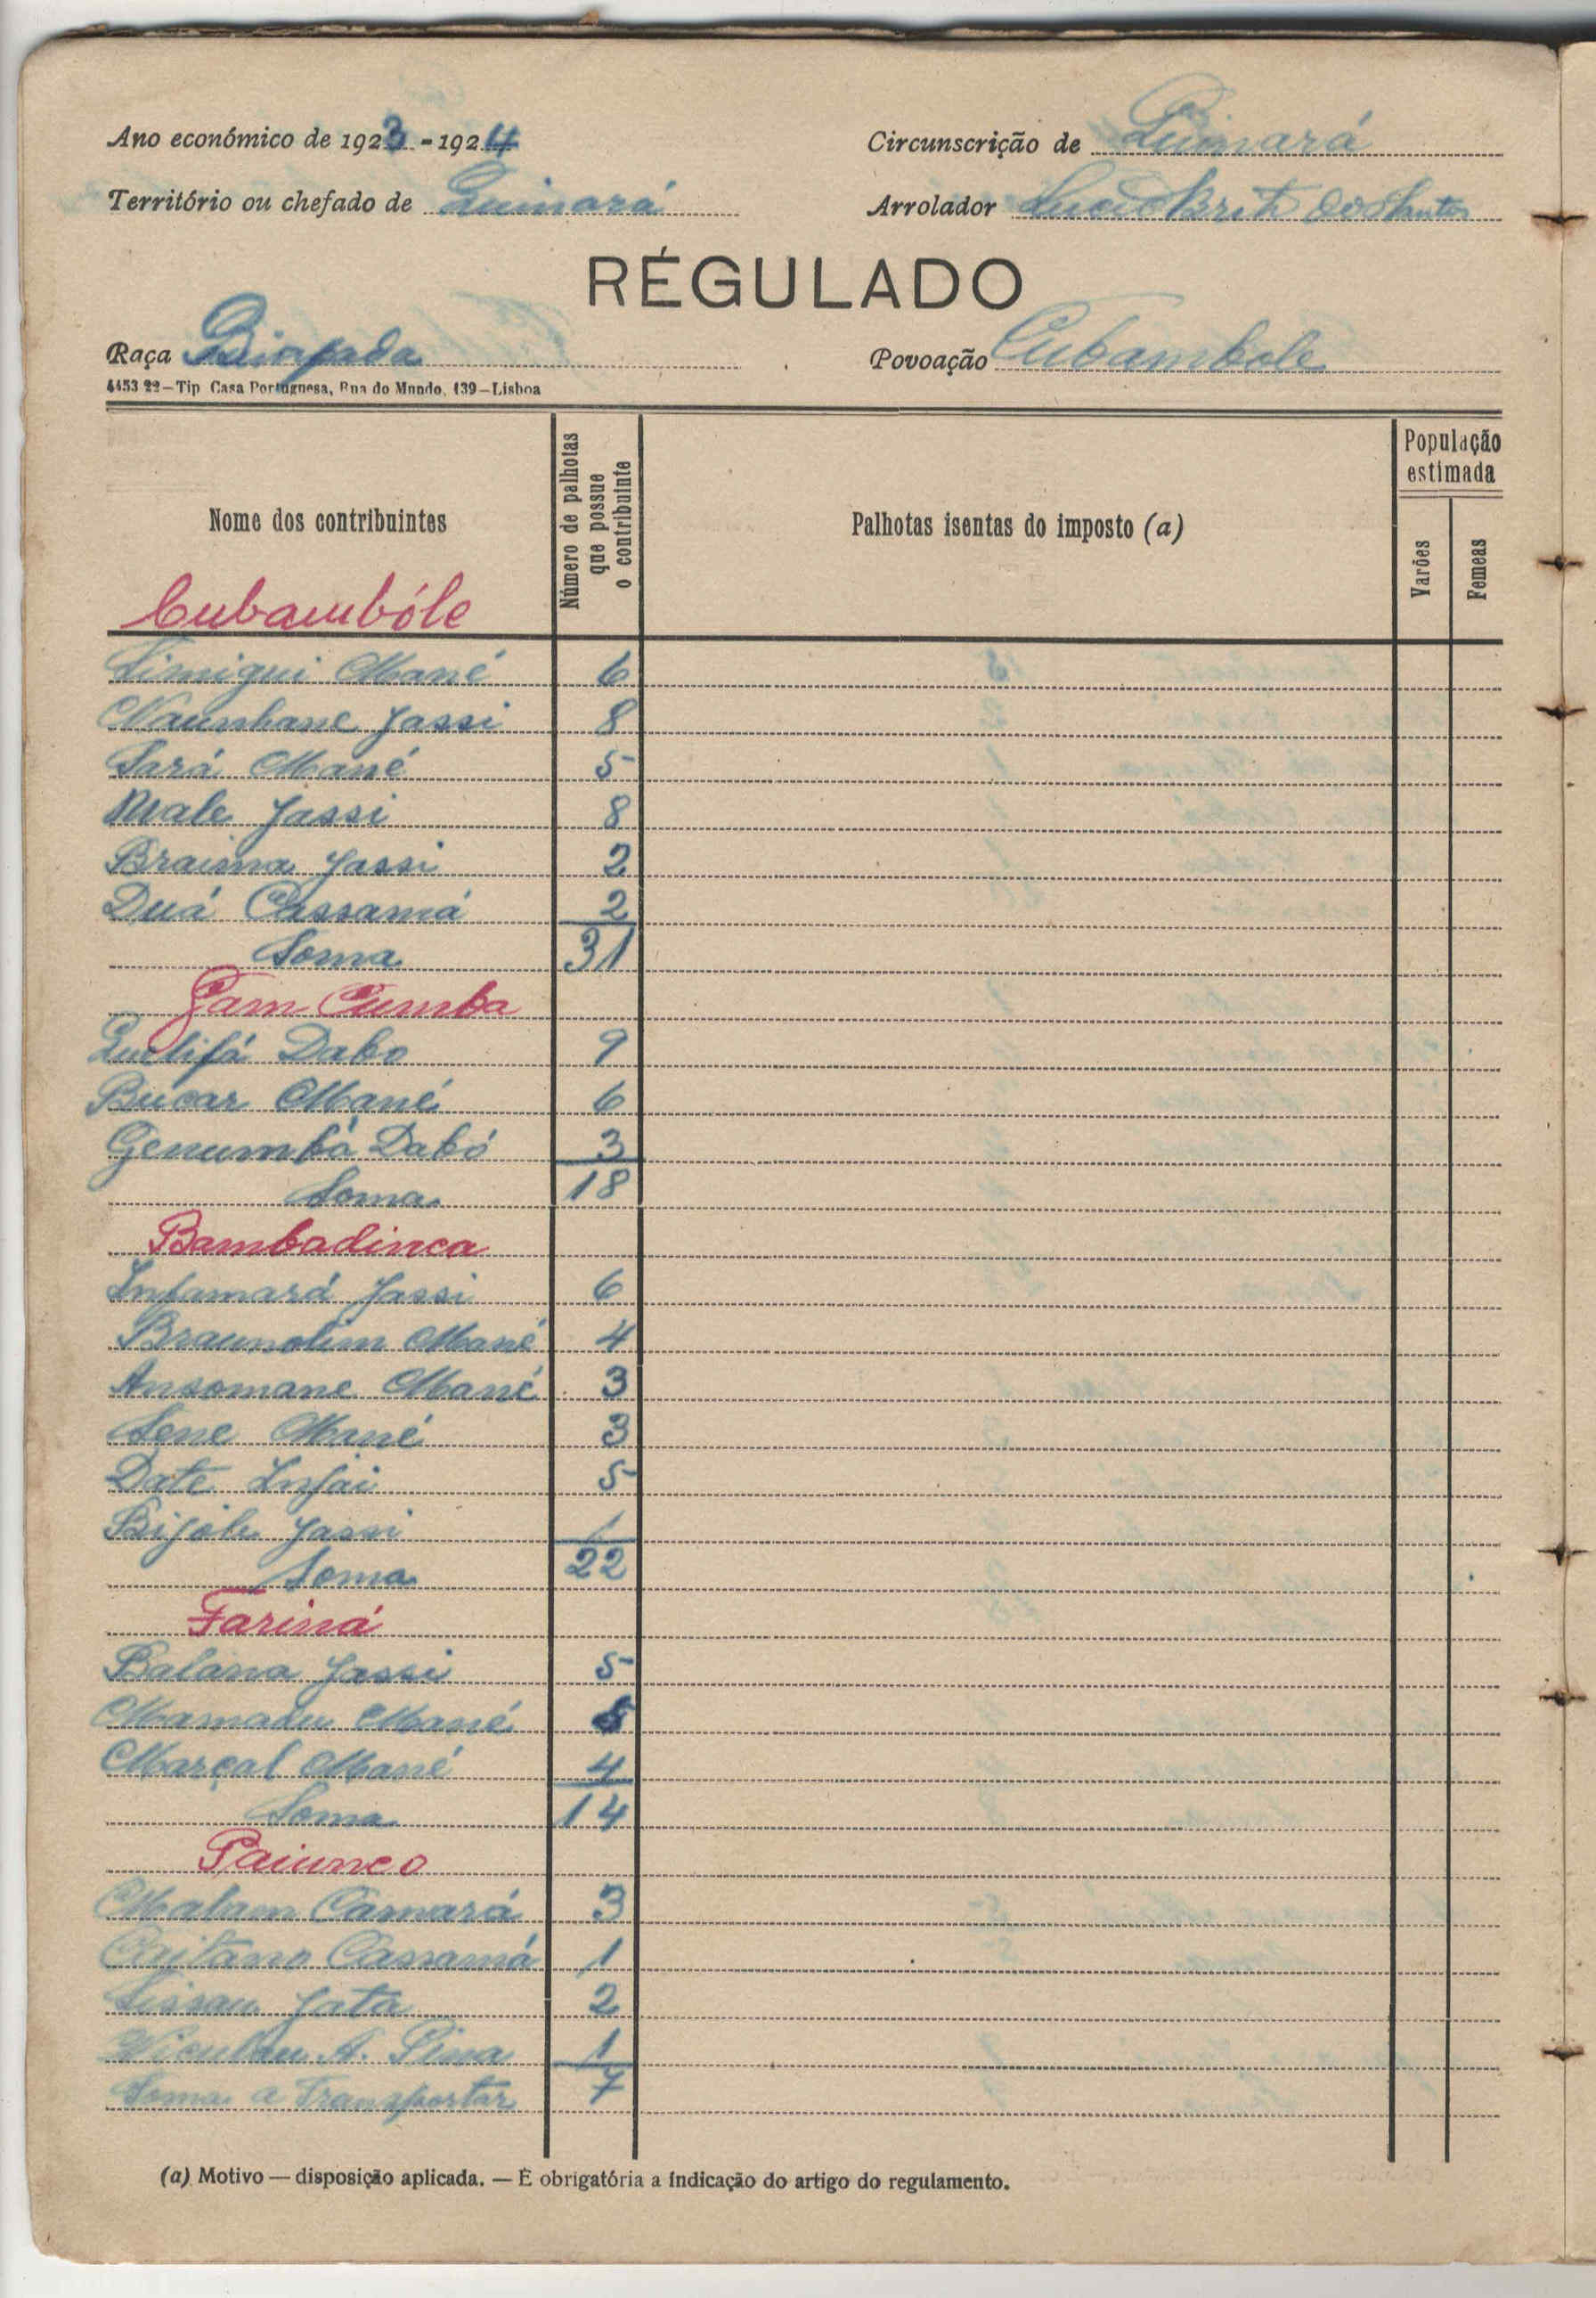 Ano económico de 1923-1924
Circunscrição de Quinará
Território ou chefado de Quinará
Arrolador Lucio Brito dos Santos
RÉGULADO
Raça Biafada
Povoação Cubambole
4453 22—Tip Casa Portuguesa, Rua do Mundo, 139—Lisboa
Nome dos contribuintes
Número de palhotas que possue o contribuinte
Palhotas isentas do imposto (a)
População estimada
Varões
Femeas
Cubambóle
Mané 6
Naumbane Jassi 8
Sará Mané 5
Male Jassi 8
Braima Jassi 2
Duá Cassamá 2
Soma 31
Gam Cumba
Quelifá Dabo 9
Bucar Mané 6
Genumbà Dabó 3
Soma 18
Bambadinca
Infamará Jassi 6
Braunolim Mané 4
Ansomane Mané 3
Sene Mané 3
Date Injai 5
Jassi 1
Soma 22
Fariná
Balana Jassi 5
Mamadu Mané 5
Marçal Mané 4
Soma 14
Paiunco
Malam Camará 3
Caitano Cassamá 1
Jata 2
Niculau A. Pina 1
Soma a Transportar 7
(a) Motivo — disposição aplicada. — É obrigatória a indicação do artigo do regulamento.